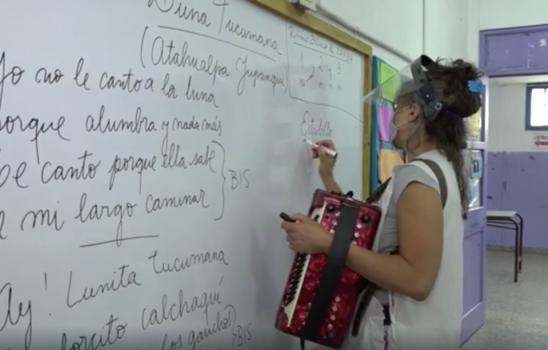 Luna Tucumana
(Atahualpa Yupanqui
Yo no le canto a la luna
porque alumbra y nada más
le canto porque ella sabe
de mi largo caminar } BIS
Ay! Lunita tucumana
calchaquí
los gauchos } BIS
Estribillo